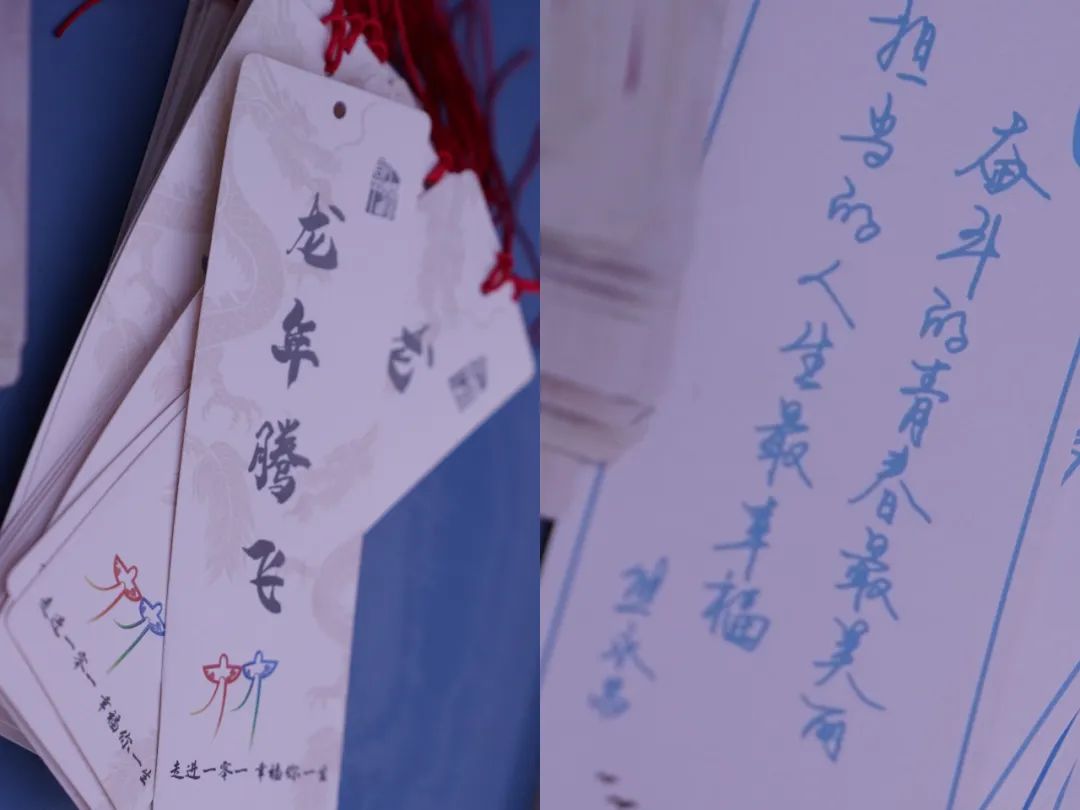 龙年腾飞
走进一零一 幸福你一生
走进一零一 幸福你一生
奋斗的青春最美丽
担当的人生最幸福